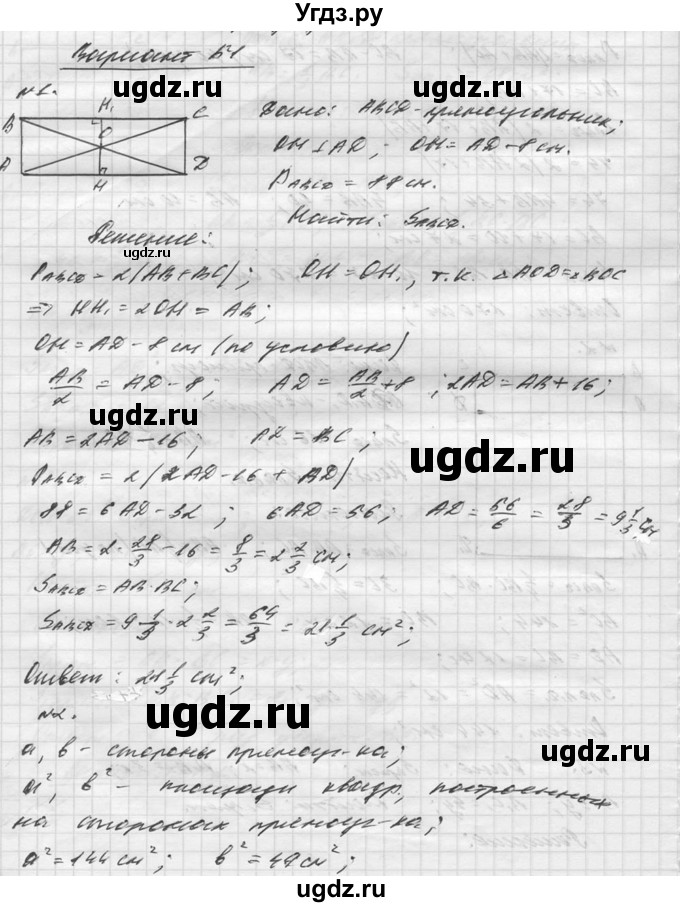 Угдз.ру
Вариант Б1
ugdz.ru ugdz.ru
№1.
B H₁ C
O
A H D
Дано: ABCD - прямоугольник;
OH ⊥ AD, OH = AD - 8 см.
P_ABCD = 88 см.
Найти: S_ABCD.
Решение:
ugdz.ru
P_ABCD = 2(AB + BC); OH = OH₁, т.к. △AOD = △BOC
⇒ HH₁ = 2OH = AB;
OH = AD - 8 см (по условию)
AB/2 = AD - 8; AD = AB/2 + 8; 2AD = AB + 16;
ugdz.ru
AB = 2AD - 16; AD = BC;
ugdz.ru
P_ABCD = 2(2AD - 16 + AD)
88 = 6AD - 32; 6AD = 56; AD = 56/6 = 28/3 = 9 1/3 см
ugdz.ru
AB = 2 · 28/3 - 16 = 8/3 = 2 2/3 см;
S_ABCD = AB · BC;
ugdz.ru
S_ABCD = 9 1/3 · 2 2/3 = 64/3 = 21 1/3 см²;
Ответ: 21 1/3 см²;
ugdz.ru
№2.
a, b - стороны прямоуг-ка;
ugdz.ru
a², b² - площади квадр, построенных
на сторонах прямоуг-ка;
ugdz.ru
a² = 144 см²; b² = 49 см²;
ugdz.ru